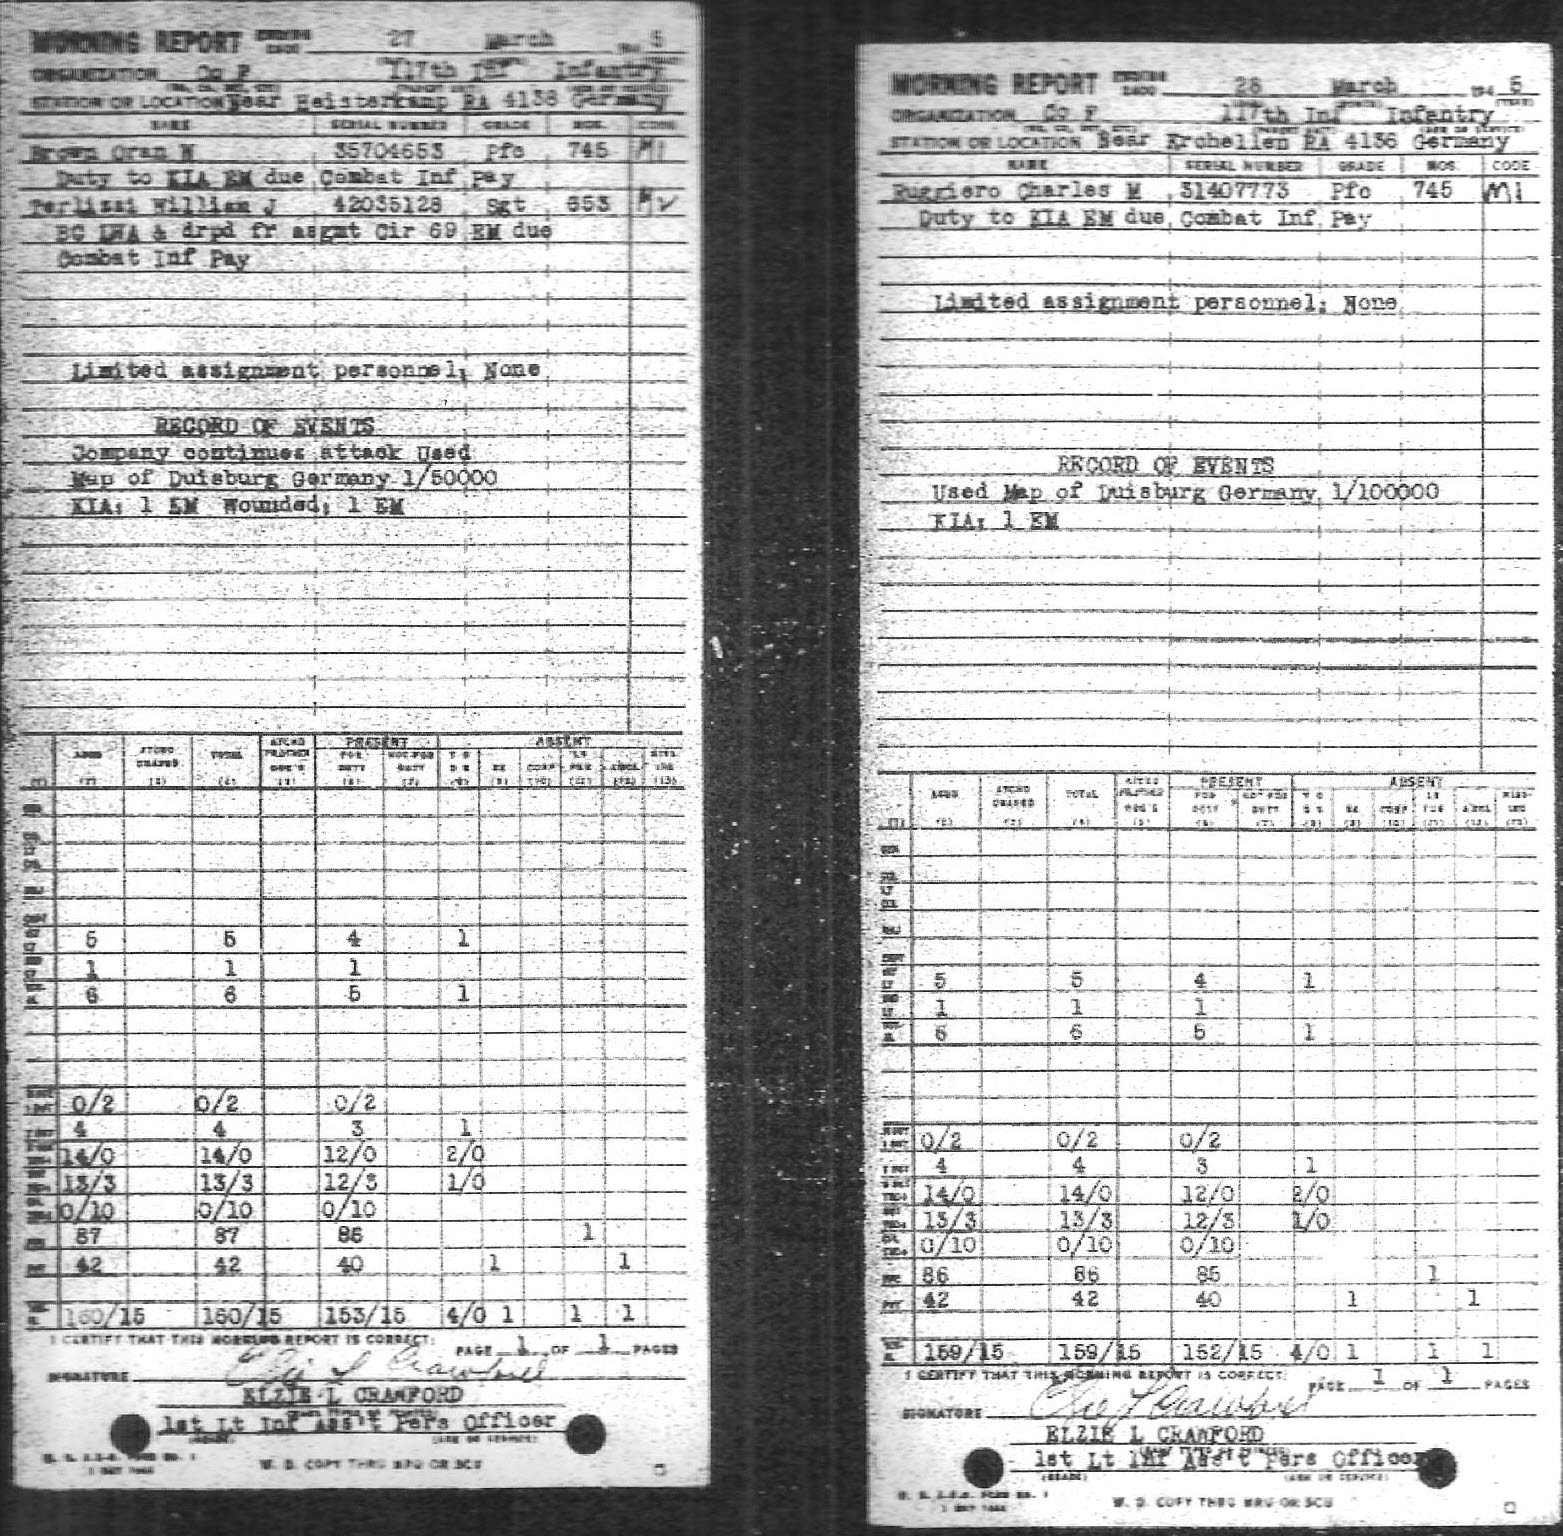 MORNING REPORT ENDING 2400 27 March 194 5
ORGANIZATION Co F 117th Inf Infantry
STATION OR LOCATION Near Heisterkamp RA 4138 Germany
NAME SERIAL NUMBER GRADE MOS. CODE
Brown Oran W 35704653 Pfc 745 M1
Duty to KIA EM due Combat Inf Pay
Terlizzi William J 42035128 Sgt 653
BC LWA & drpd fr asgmt Cir 69 EM due
Combat Inf Pay
Limited assignment personnel: None
RECORD OF EVENTS
Company continues attack Used
Map of Duisburg Germany 1/50000
KIA: 1 EM Wounded: 1 EM
PRESENT ABSENT
5 5 4 1
1 1 1
6 6 5 1
0/2 0/2 0/2
4 4 3 1
14/0 14/0 12/0 2/0
13/3 13/3 12/3 1/0
0/10 0/10 0/10
87 87 86 1
42 42 40 1 1
160/15 160/15 153/15 4/0 1 1 1
I CERTIFY THAT THIS MORNING REPORT IS CORRECT:
PAGE 1 OF 1 PAGES
SIGNATURE Elzie L Crawford
ELZIE L CRAWFORD
1st Lt Inf Ass't Pers Officer
W. D. COPY THRU MRU OR SCU
MORNING REPORT ENDING 2400 28 March 194 5
ORGANIZATION Co F 117th Inf Infantry
STATION OR LOCATION Near Krohellen RA 4136 Germany
NAME SERIAL NUMBER GRADE MOS. CODE
Ruggiero Charles M 31407773 Pfc 745 M1
Duty to KIA EM due Combat Inf Pay
Limited assignment personnel: None
RECORD OF EVENTS
Used Map of Duisburg Germany 1/100000
KIA: 1 EM
PRESENT ABSENT
5 5 4 1
1 1 1
6 6 5 1
0/2 0/2 0/2
4 4 3 1
14/0 14/0 12/0 2/0
13/3 13/3 12/3 1/0
0/10 0/10 0/10
86 86 85 1
42 42 40 1 1
159/15 159/15 152/15 4/0 1 1 1
I CERTIFY THAT THIS MORNING REPORT IS CORRECT:
PAGE 1 OF 1 PAGES
SIGNATURE Elzie L Crawford
ELZIE L CRAWFORD
1st Lt Inf Ass't Pers Officer
W. D. COPY THRU MRU OR SCU